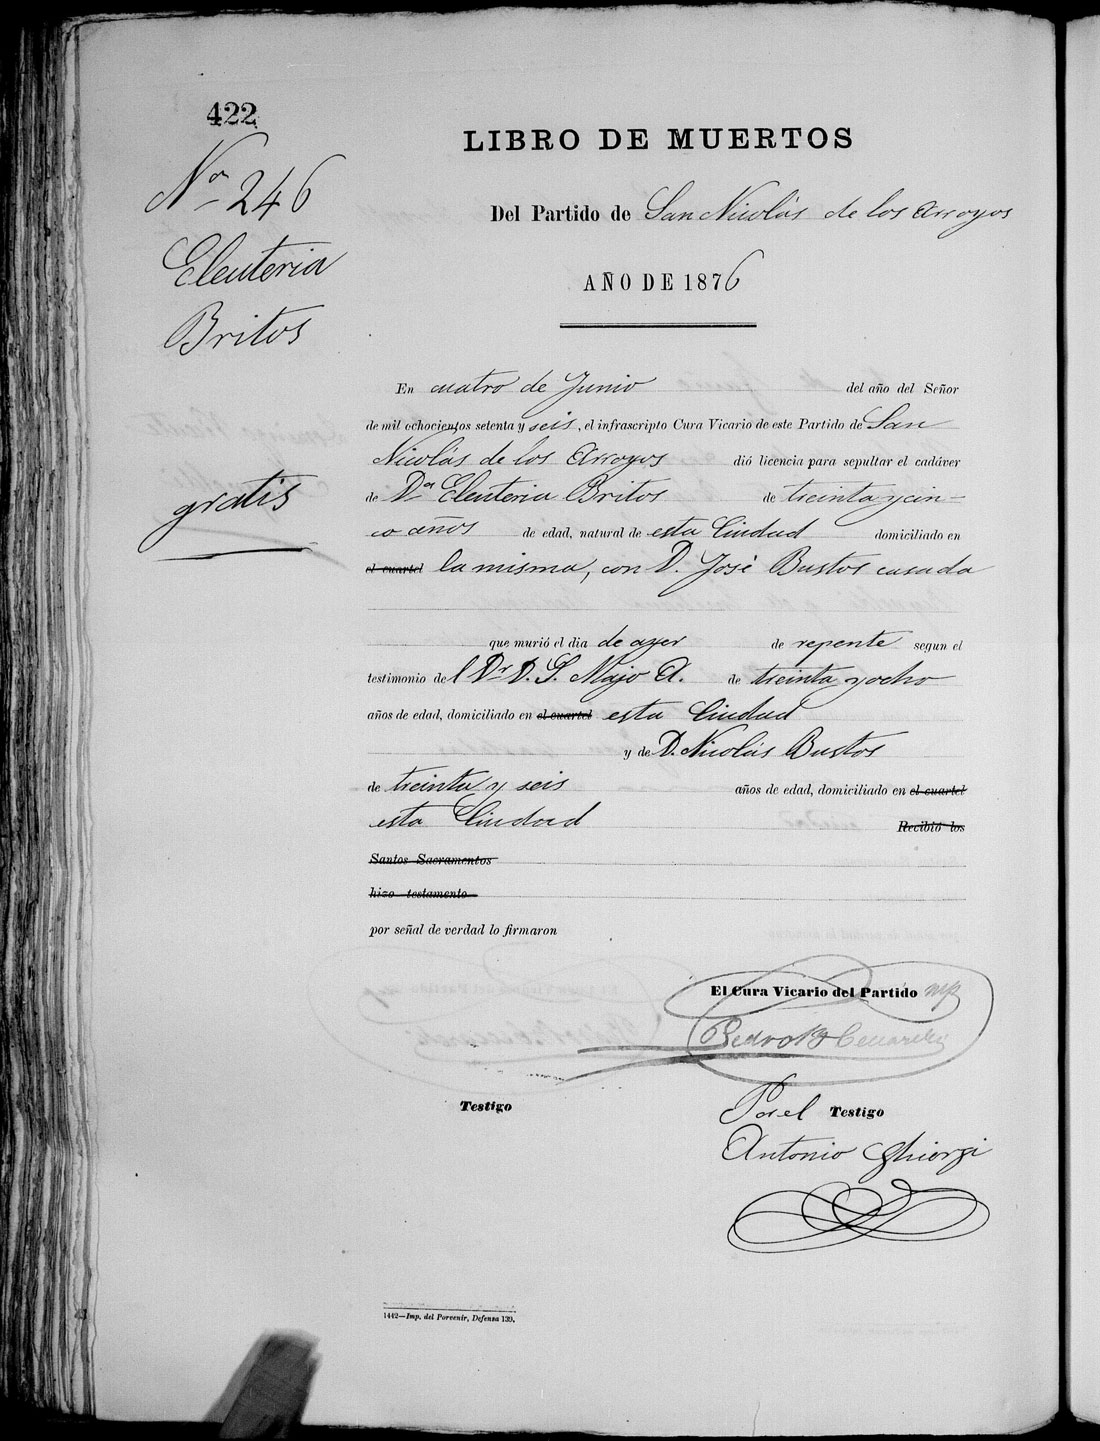 422
LIBRO DE MUERTOS
Nº 246
Del Partido de San Nicolás de los Arroyos
Eleuteria
AÑO DE 1876
Britos
En cuatro de Junio del año del Señor
de mil ochocientos setenta y seis, el infrascripto Cura Vicario de este Partido de San
Nicolás de los Arroyos dió licencia para sepultar el cadáver
gratis
de Dª Eleuteria Britos de treinta y cin-
co años de edad, natural de esta Ciudad domiciliado en
el cuartel la misma, con D. José Bustos casada
que murió el dia de ayer de repente segun el
testimonio del Dr. D. S. Majo A. de treinta y ocho
años de edad, domiciliado en el cuartel esta Ciudad
y de D. Nicolás Bustos
de treinta y seis años de edad, domiciliado en el cuartel
esta Ciudad Recibió los
Santos Sacramentos
hizo testamento
por señal de verdad lo firmaron
El Cura Vicario del Partido
Pedro B. Ceccarelli
Testigo Por el Testigo
Antonio Ghiorzi
1442—Imp. del Porvenir, Defensa 139.